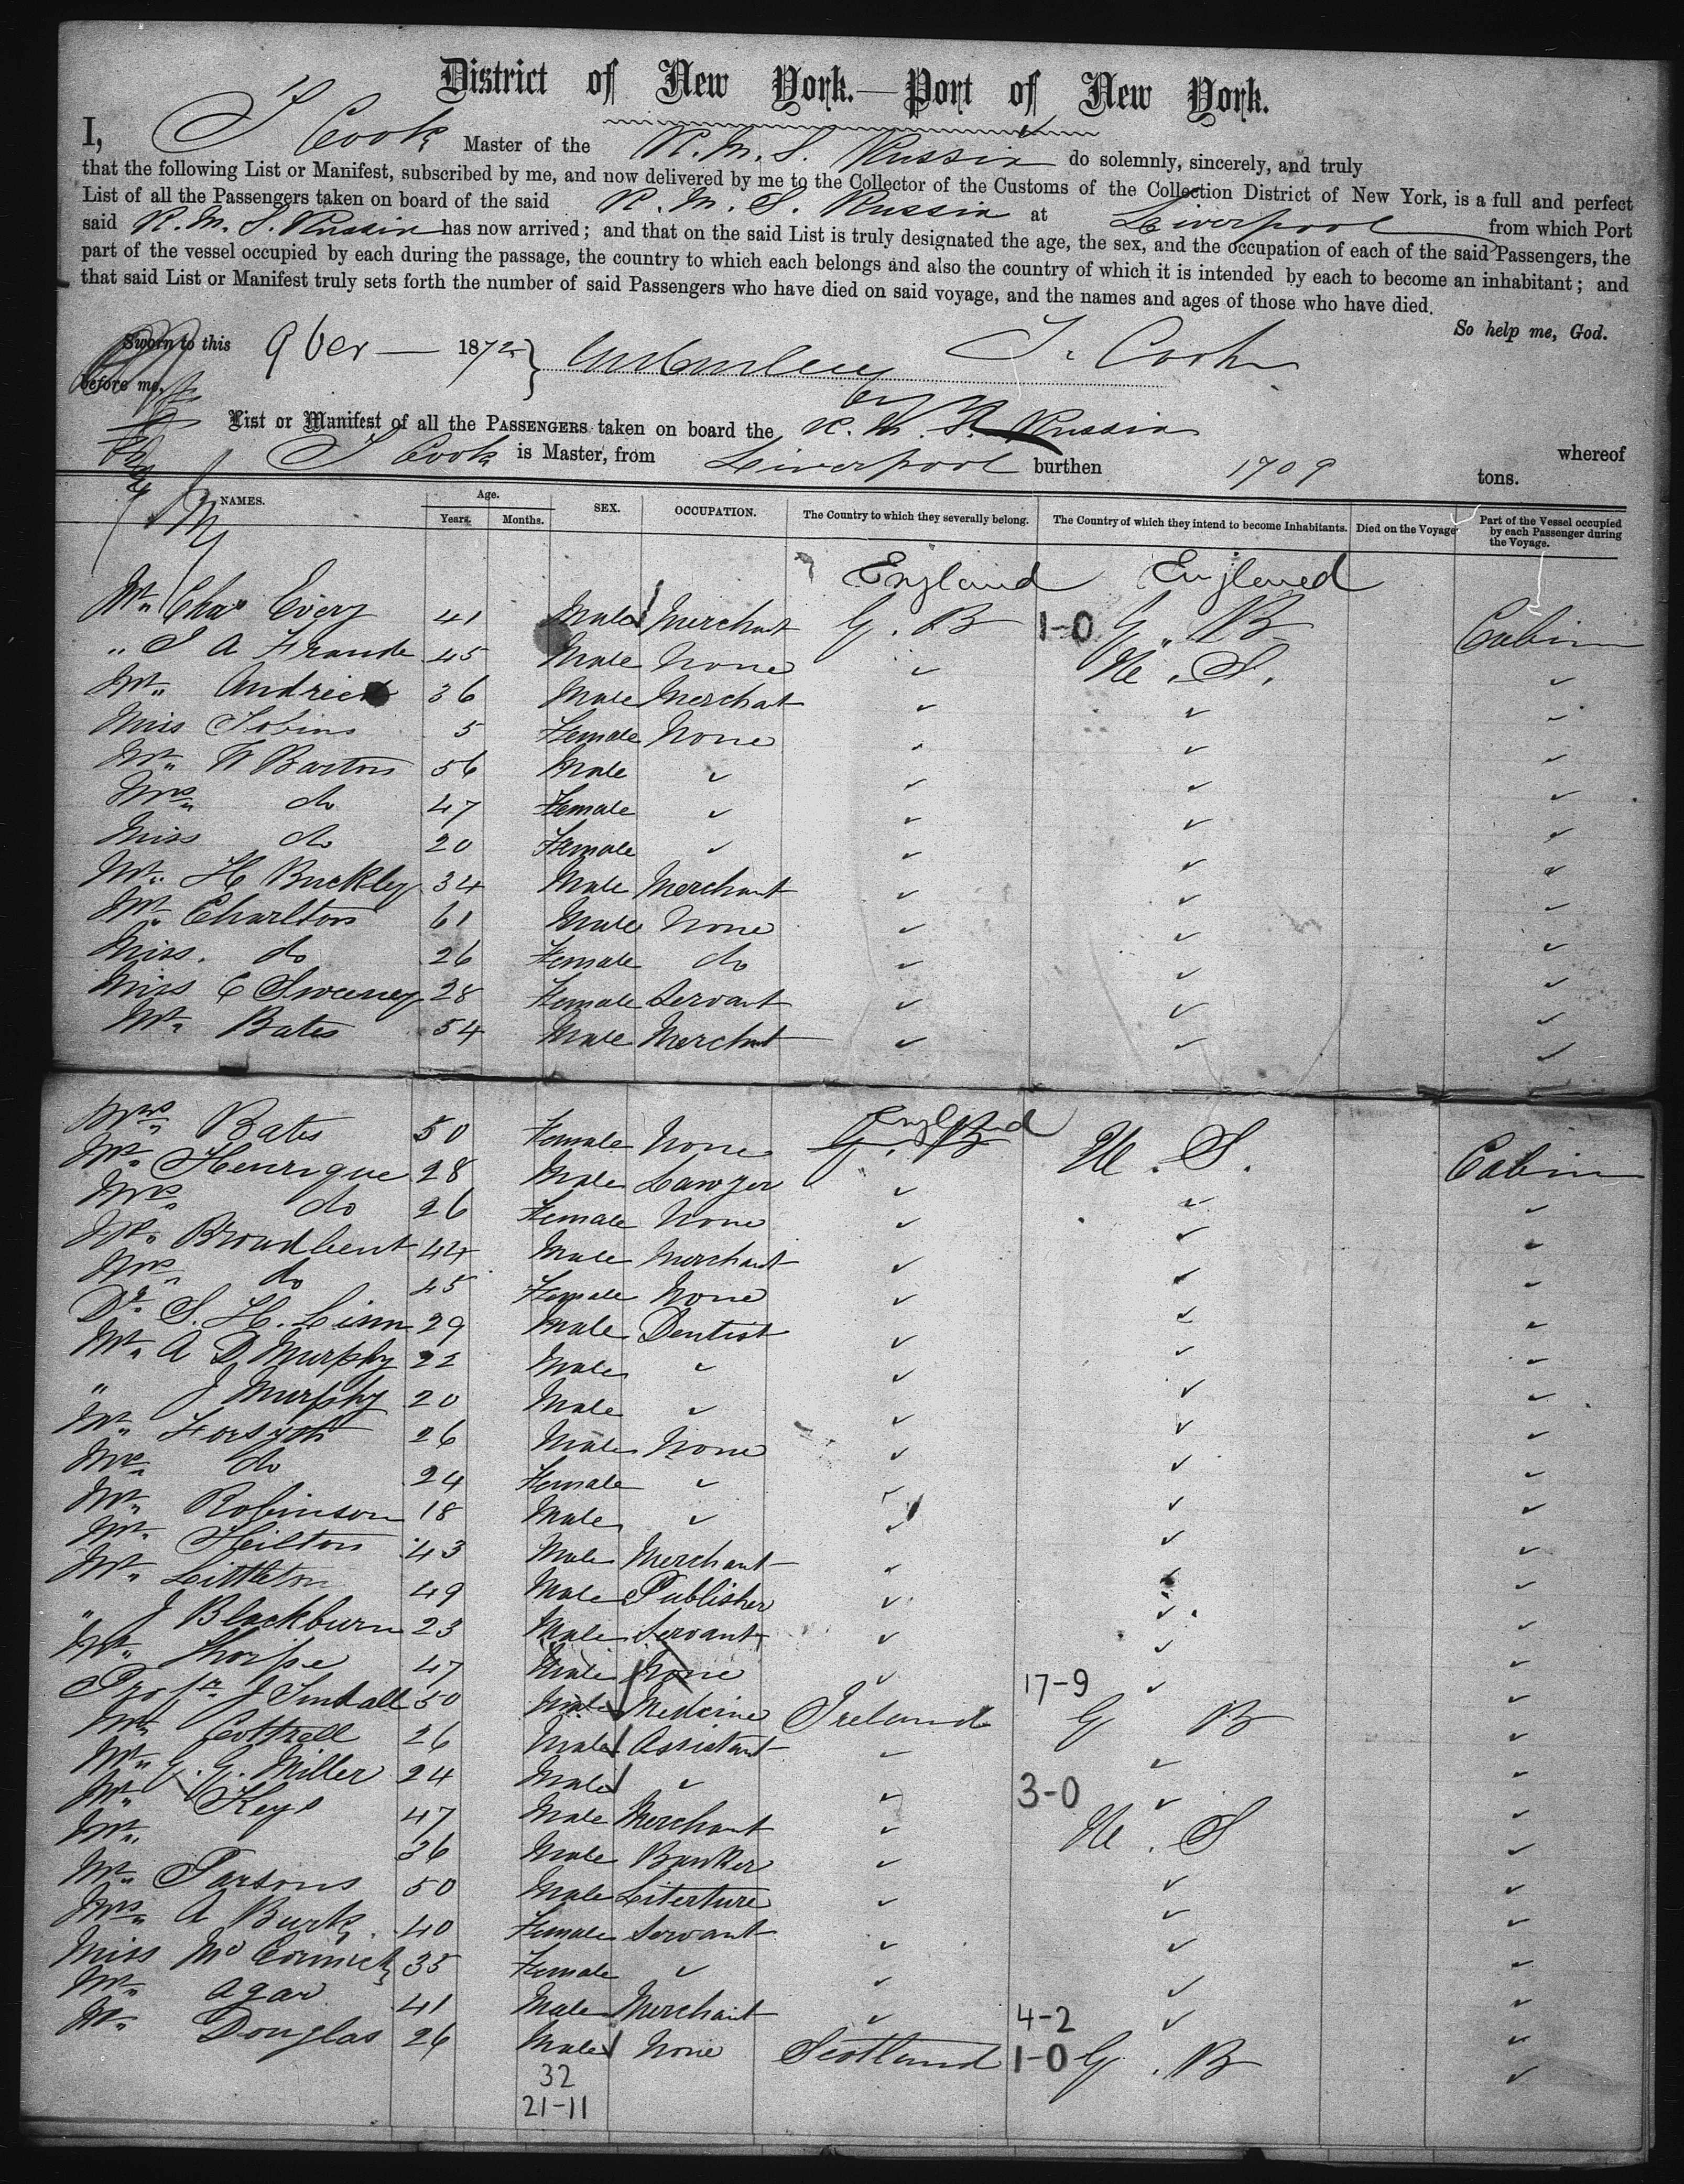 District of New York.—Port of New York.
I, T Cook Master of the R.M.S. Russia do solemnly, sincerely, and truly
that the following List or Manifest, subscribed by me, and now delivered by me to the Collector of the Customs of the Collection District of New York, is a full and perfect
List of all the Passengers taken on board of the said R.M.S. Russia at Liverpool from which Port
said R.M.S. Russia has now arrived; and that on the said List is truly designated the age, the sex, and the occupation of each of the said Passengers, the
part of the vessel occupied by each during the passage, the country to which each belongs and also the country of which it is intended by each to become an inhabitant; and
that said List or Manifest truly sets forth the number of said Passengers who have died on said voyage, and the names and ages of those who have died.
So help me, God.
Sworn to this 9 ber — 1872 } T. Cook
before me,
List or Manifest of all the PASSENGERS taken on board the R.M.S. Russia whereof
T Cook is Master, from Liverpool burthen 1709 tons.
NAMES. Age. Years. Months. SEX. OCCUPATION. The Country to which they severally belong. The Country of which they intend to become Inhabitants. Died on the Voyage Part of the Vessel occupied by each Passenger during the Voyage.
England England
Mr. Chas Every 41 Male Merchant G. B 1-0 G. B Cabin
" J A Fraude 45 Male None ✓ U. S. ✓
Mr. 36 Male Merchat ✓ ✓ ✓
Miss Tobins 5 Female None ✓ ✓ ✓
Mr. W Barton 56 Male ✓ ✓ ✓ ✓
Mrs do 47 Female ✓ ✓ ✓ ✓
Miss do 20 Female ✓ ✓ ✓ ✓
Mr. H Buckley 34 Male Merchant ✓ ✓ ✓
Mr. Charlton 61 Male None ✓ ✓ ✓
Miss. do 26 Female do ✓ ✓ ✓
Miss C Sweeney 28 Female Servant ✓ ✓ ✓
Mr. Bates 54 Male Merchant ✓ ✓ ✓
England
Mrs Bates 50 Female None G. B U. S. Cabin
Mr. Henrique 28 Male Lawyer ✓ ✓ ✓
Mrs do 26 Female None ✓ ✓ ✓
Mr. Broadbent 44 Male Merchant ✓ ✓ ✓
Mrs do 45 Female None ✓ ✓ ✓
Dr. S. H. Linn 29 Male Dentist ✓ ✓ ✓
Mr. A D Murphy 22 Male ✓ ✓ ✓ ✓
" J Murphy 20 Male ✓ ✓ ✓ ✓
Mr. Forsyth 26 Male None ✓ ✓ ✓
Mrs do 24 Female ✓ ✓ ✓
Mr. Robinson 18 Male ✓ ✓ ✓ ✓
Mr. Heilton 43 Male Merchant ✓ ✓ ✓
Mr. Littleton 49 Male Publisher ✓ ✓ ✓
" J Blackburn 23 Male Servant ✓ ✓ ✓
Mr. Thorpe 47 Male None ✓ 17-9 ✓ ✓
Profr. J Tindall 50 Male Medicine Ireland G B ✓
Mr. Cottrell 26 Male Assistant ✓ ✓ ✓
Mr. G. G. Miller 24 Male ✓ ✓ 3-0 ✓ ✓
Mr. Keys 47 Male Merchant ✓ U. S ✓
Mr. 36 Male Banker ✓ ✓ ✓
Mr. Parsons 50 Male Literture ✓ ✓ ✓
Mrs A Burk 40 Female Servant ✓ ✓ ✓
Miss McCormick 35 Female ✓ ✓ ✓ ✓
Mr. Agar 41 Male Merchant ✓ 4-2 ✓ ✓
Mr. Douglas 26 Male None Scotland 1-0 G. B ✓
32
21-11